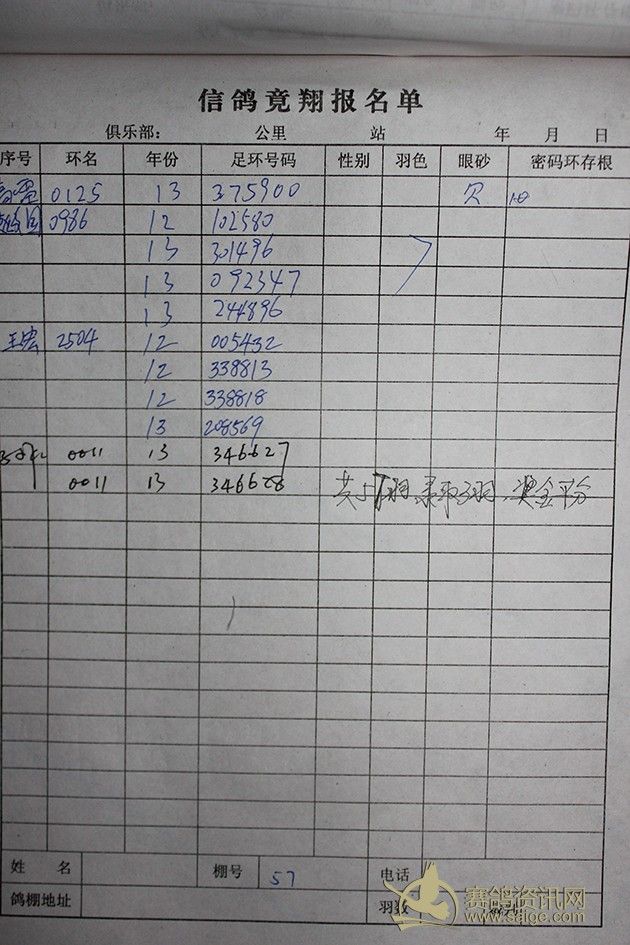 信鸽竟翔报名单
俱乐部： 公里 站 年 月 日
序号 环名 年份 足环号码 性别 羽色 眼砂 密码环存根
0125 13 375900 欠 10
0986 12 102580
13 301496
13 092347
13 244896
王宏 2504 12 005432
12 338813
12 338818
13 208569
0011 13 346627
0011 13 346628 共57羽,录取3羽,奖金平分
姓名 棚号 57 电话
鸽棚地址 羽数
赛鸽资讯网
www.saige.com